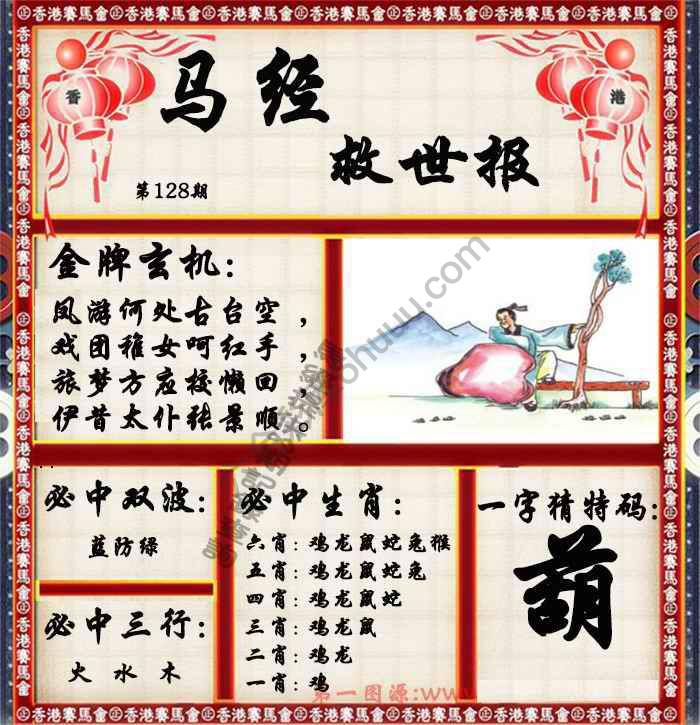 香港賽馬會
香 港
马经
救世报
第128期
金牌玄机：
凤游何处古台空，
戏团稚女呵红手，
旅梦方应校懒回，
伊昔太仆张景顺。
必中双波：
蓝防绿
必中三行：
火 水 木
必中生肖：
六肖：鸡龙鼠蛇兔猴
五肖：鸡龙鼠蛇兔
四肖：鸡龙鼠蛇
三肖：鸡龙鼠
二肖：鸡龙
一肖：鸡
一字猜特码：
葫
第一图源:www